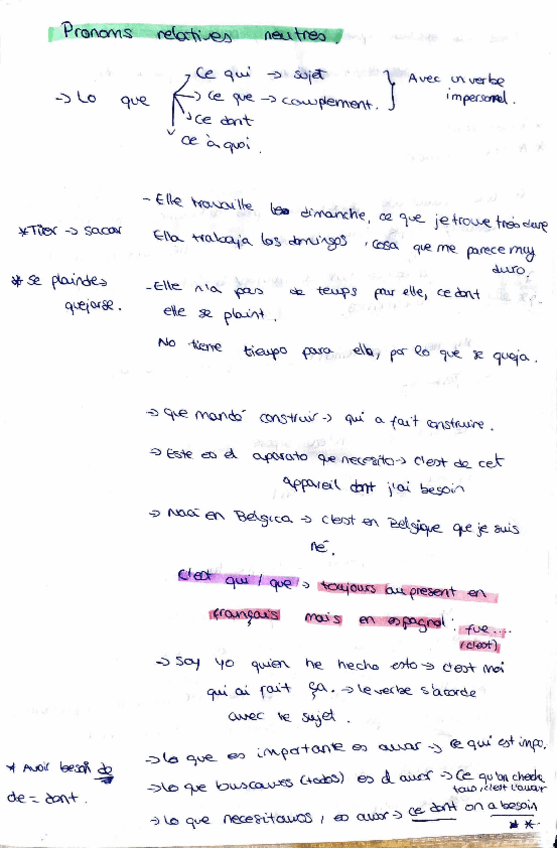 Pronoms relatives neutres.
Ce qui → sujet
→ Lo que → Ce que → complement. } Avec un verbe impersonel.
Ce dont
Ce à quoi.
- Elle travaille dimanche, ce que je trouve très dure
* Tirer → sacar
Ella trabaja los domingos, cosa que me parece muy
duro.
* se plaindre →
quejarse.
- Elle n'a pas de temps pour elle, ce dont
elle se plaint.
No tiene tiempo para ella, por lo que se queja.
→ que mandó construir → qui a fait construire.
→ Este es el aparato que necesito → c'est de cet
appareil dont j'ai besoin
→ Nací en Belgica → c'est en Belgique que je suis
né.
c'est qui / que → toujours au present en
français mais en espagnol : fue....
(c'est)
→ Soy yo quien he hecho esto → c'est moi
qui ai fait ça. → le verbe s'acorde
avec le sujet.
→ lo que es importante es amar → ce qui est impo.
* Avoir besoin de
de = dont.
→ lo que buscamos (todos) es el amor → Ce qu'on cherche
tous, c'est l'amour
→ lo que necesitamos, es amor → ce dont on a besoin
**